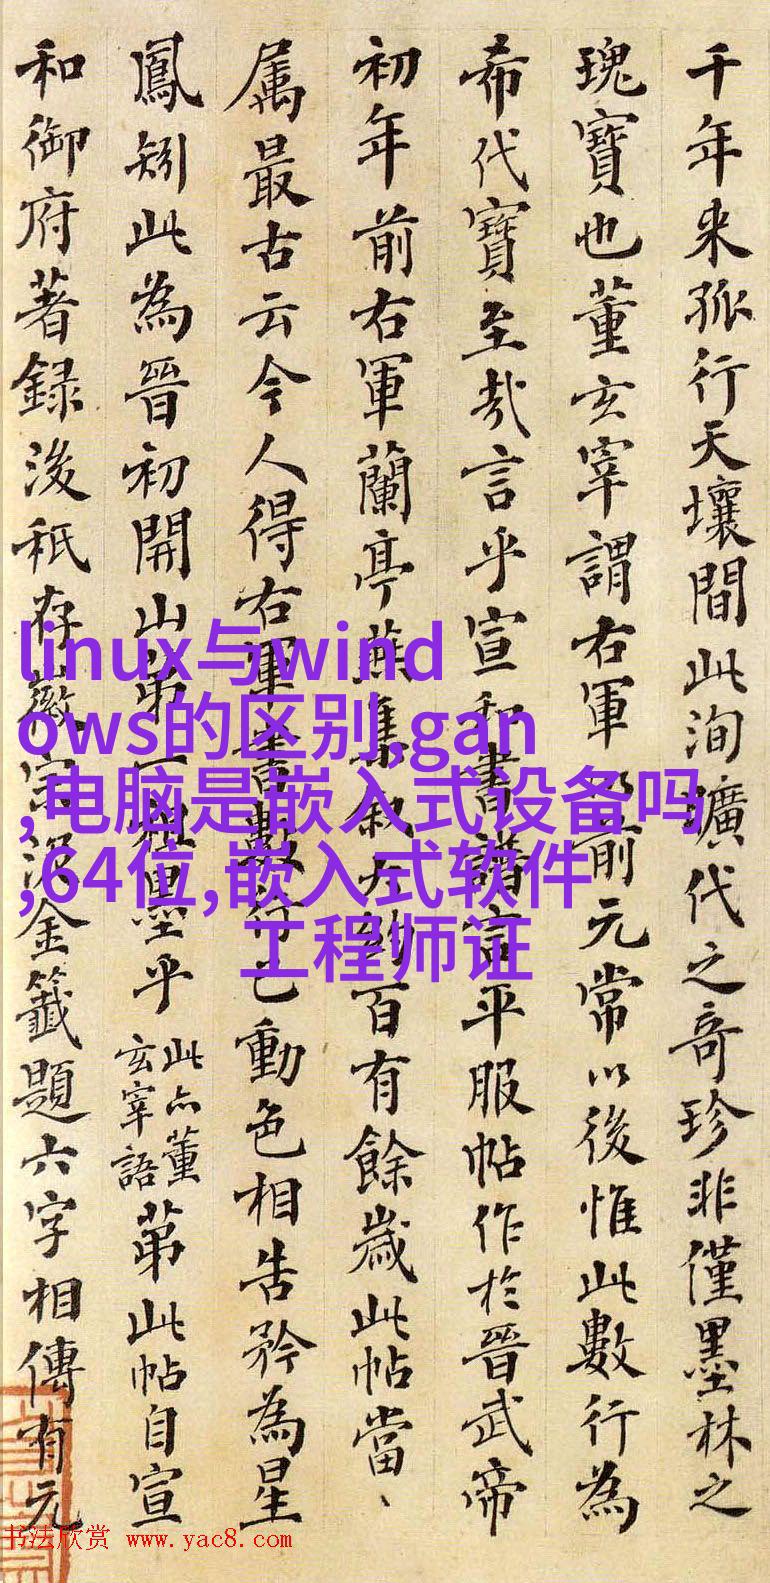 千年来孤行天壤間此洵壙代之奇珍非僅墨林之
瑰寶也董玄宰謂右軍以前元常以後惟此數行為
希代寶至哉言乎宣和書譜言平服帖作於晉武帝
初年前右軍蘭亭燕集叙大約百有餘歲此帖當、
属最古云今人得右軍書數行已動色相告矜為星
鳳矧此為晉初開山第一祖墨乎此亦董玄宰語第此帖自宣
和御府著録後祇存徽宗泥金籤題六字相傳有元
linux与wind
ows的区别,gan
,电脑是嵌入式设备吗
,64位,嵌入式软件
工程师证
书法欣赏 www.yac8.com